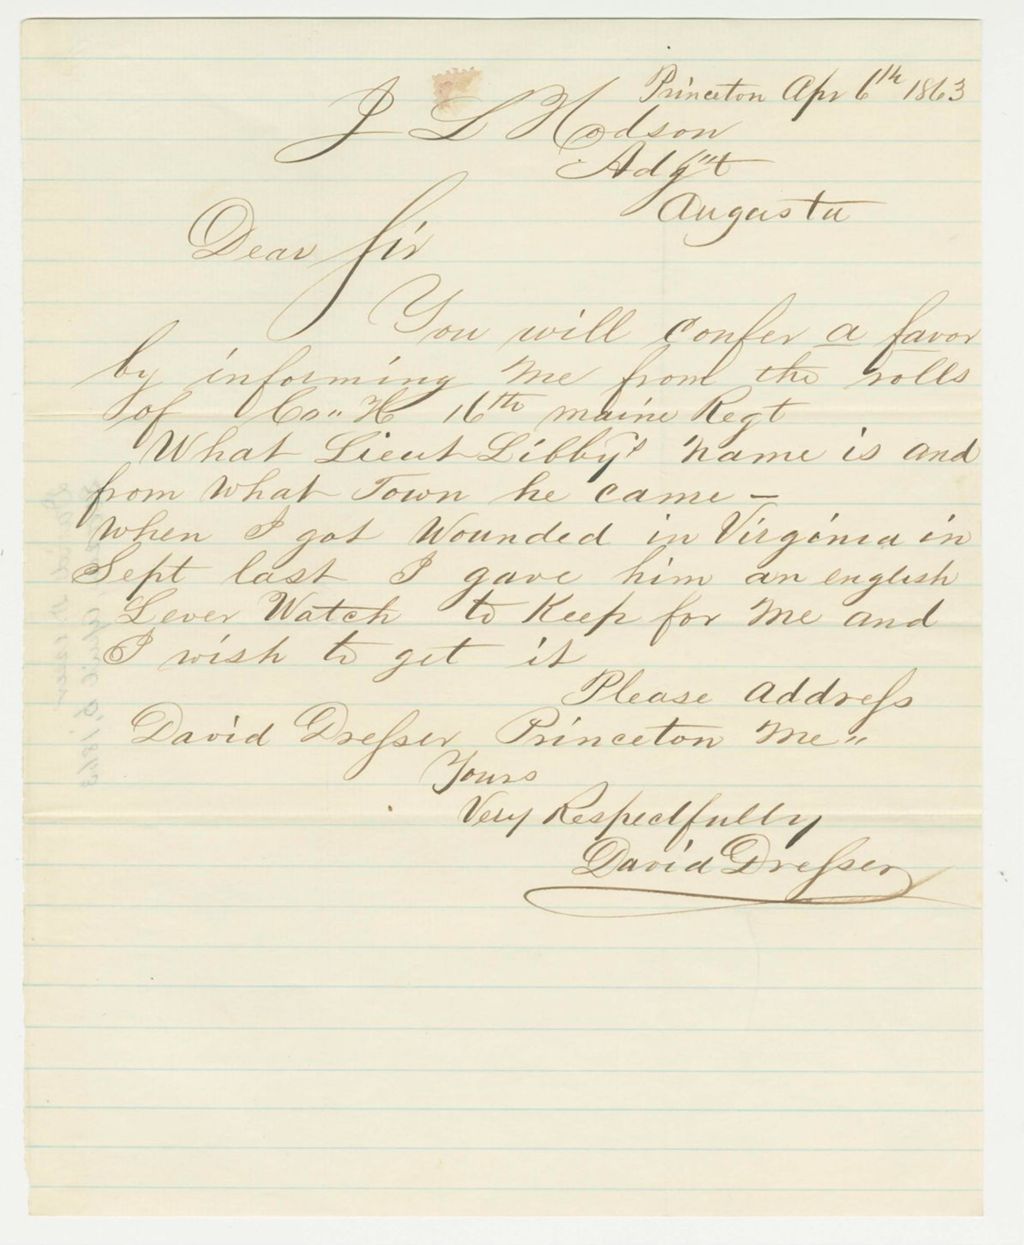 Princeton Apr 6th 1863
J L Hodson
Adg"t
Augusta
Dear Sir
You will confer a favor
by informing me from the rolls
of Co" H 16th maine Regt
What Lieut Libby's name is and
from what Town he came —
when I got wounded in Virginia in
Sept last I gave him an english
Lever Watch to Keep for me and
I wish to get it
Please address
David Dresser Princeton Me"
Yours
Very Respectfully
David Dresser